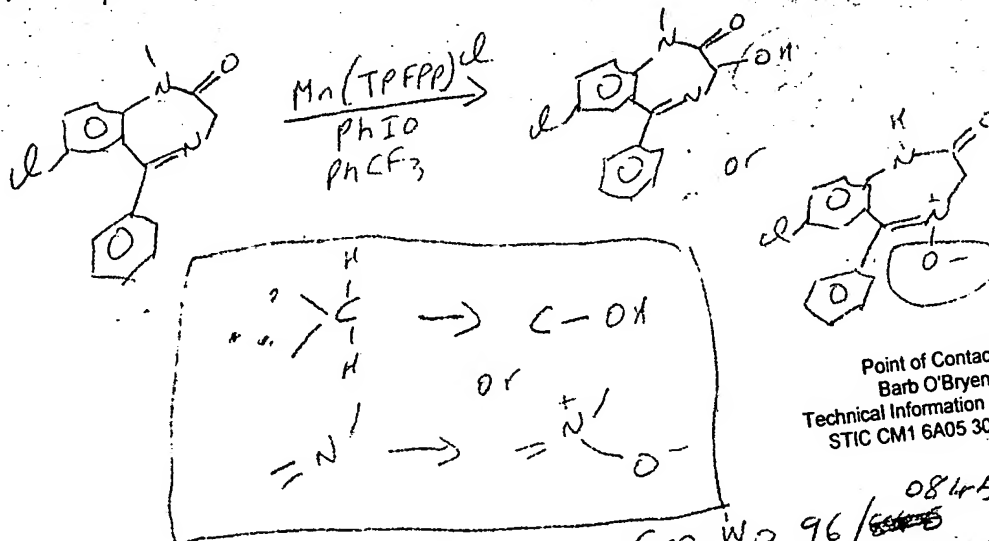 N
O
Cl
N
Mn(TPFPP)Cl
PhIO
PhCF3
N
O
OH
Cl
N
or
H
N
O
Cl
N+
O-
H
?
C → C - OH
H
or
=N → =N+
O-
Point of Contac
Barb O'Bryen
Technical Information
STIC CM1 6A05 30
WO 96/